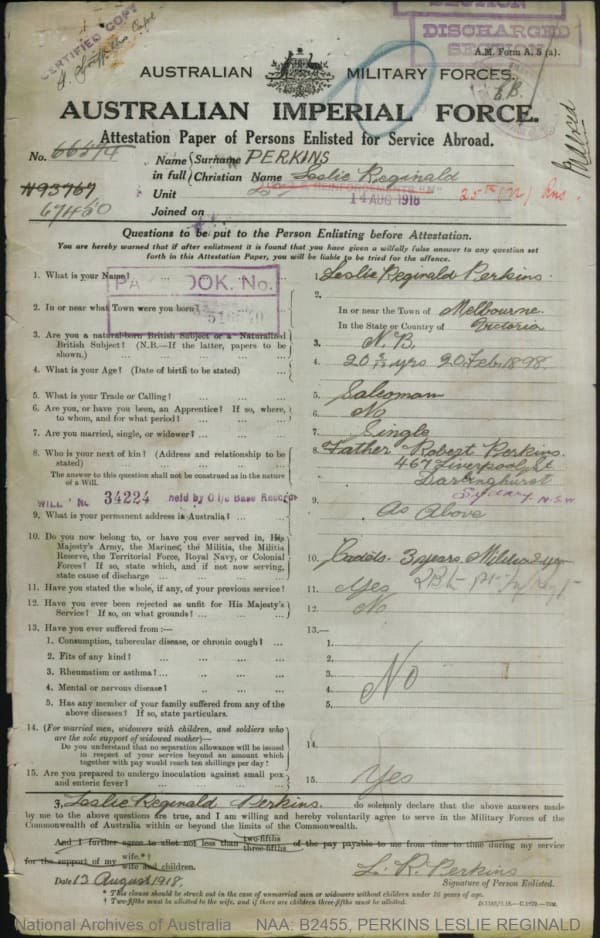 CERTIFIED COPY
DISCHARGED
SECTION
A.M. Form A. 5 (a).
AUSTRALIAN MILITARY FORCES.
AUSTRALIAN IMPERIAL FORCE.
Attestation Paper of Persons Enlisted for Service Abroad.
No. 66574
Name in full
Surname PERKINS
Christian Name Leslie Reginald
N93767
Unit
67450
Joined on
14 AUG 1918
Questions to be put to the Person Enlisting before Attestation.
You are hereby warned that if after enlistment it is found that you have given a wilfully false answer to any question set
forth in this Attestation Paper, you will be liable to be tried for the offence.
1. What is your Name? ... 1. Leslie Reginald Perkins.
2. In or near what Town were you born? 2. In or near the Town of Melbourne.
In the State or Country of Victoria
3. Are you a natural-born British Subject or a Naturalized
British Subject? (N.B.—If the latter, papers to be
shown.) 3. N.B.
4. What is your Age? (Date of birth to be stated) 4. 20 yrs 20 Feb. 1898.
5. What is your Trade or Calling? 5. Salesman
6. Are you, or have you been, an Apprentice? If so, where,
to whom, and for what period? 6. No
7. Are you married, single, or widower? 7. Single
8. Who is your next of kin? (Address and relationship to be
stated) 8. Father Robert Perkins.
467 Liverpool St
Darlinghurst
Sydney N.S.W
The answer to this question shall not be construed as in the nature
of a Will.
WILL No 34224 held by O i/c Base Records
9. What is your permanent address in Australia? 9. As Above
10. Do you now belong to, or have you ever served in, His
Majesty's Army, the Marines, the Militia, the Militia
Reserve, the Territorial Force, Royal Navy, or Colonial
Forces? If so, state which, and if not now serving,
state cause of discharge 10. Cadets. 3 years. Militia 2 yrs
11. Have you stated the whole, if any, of your previous service? 11. Yes
12. Have you ever been rejected as unfit for His Majesty's
Service? If so, on what grounds? 12. No
13. Have you ever suffered from:— 13.—
1. Consumption, tubercular disease, or chronic cough? 1.
2. Fits of any kind? 2.
3. Rheumatism or asthma? 3. No
4. Mental or nervous disease? 4.
5. Has any member of your family suffered from any of the
above diseases? If so, state particulars. 5.
14. (For married men, widowers with children, and soldiers who
are the sole support of widowed mother)—
Do you understand that no separation allowance will be issued
in respect of your service beyond an amount which
together with pay would reach ten shillings per day? 14.
15. Are you prepared to undergo inoculation against small pox
and enteric fever? 15. Yes
I, Leslie Reginald Perkins. do solemnly declare that the above answers made
by me to the above questions are true, and I am willing and hereby voluntarily agree to serve in the Military Forces of the
Commonwealth of Australia within or beyond the limits of the Commonwealth.
And I further agree to allot not less than two-fifths three-fifths of the pay payable to me from time to time during my service
for the support of my wife.*†
wife and children.
Date 13 August 1918. L. R. Perkins
Signature of Person Enlisted.
* This clause should be struck out in the case of unmarried men or widowers without children under 16 years of age.
† Two-fifths must be allotted to the wife, and if there are children three-fifths must be allotted.
National Archives of Australia NAA: B2455, PERKINS LESLIE REGINALD